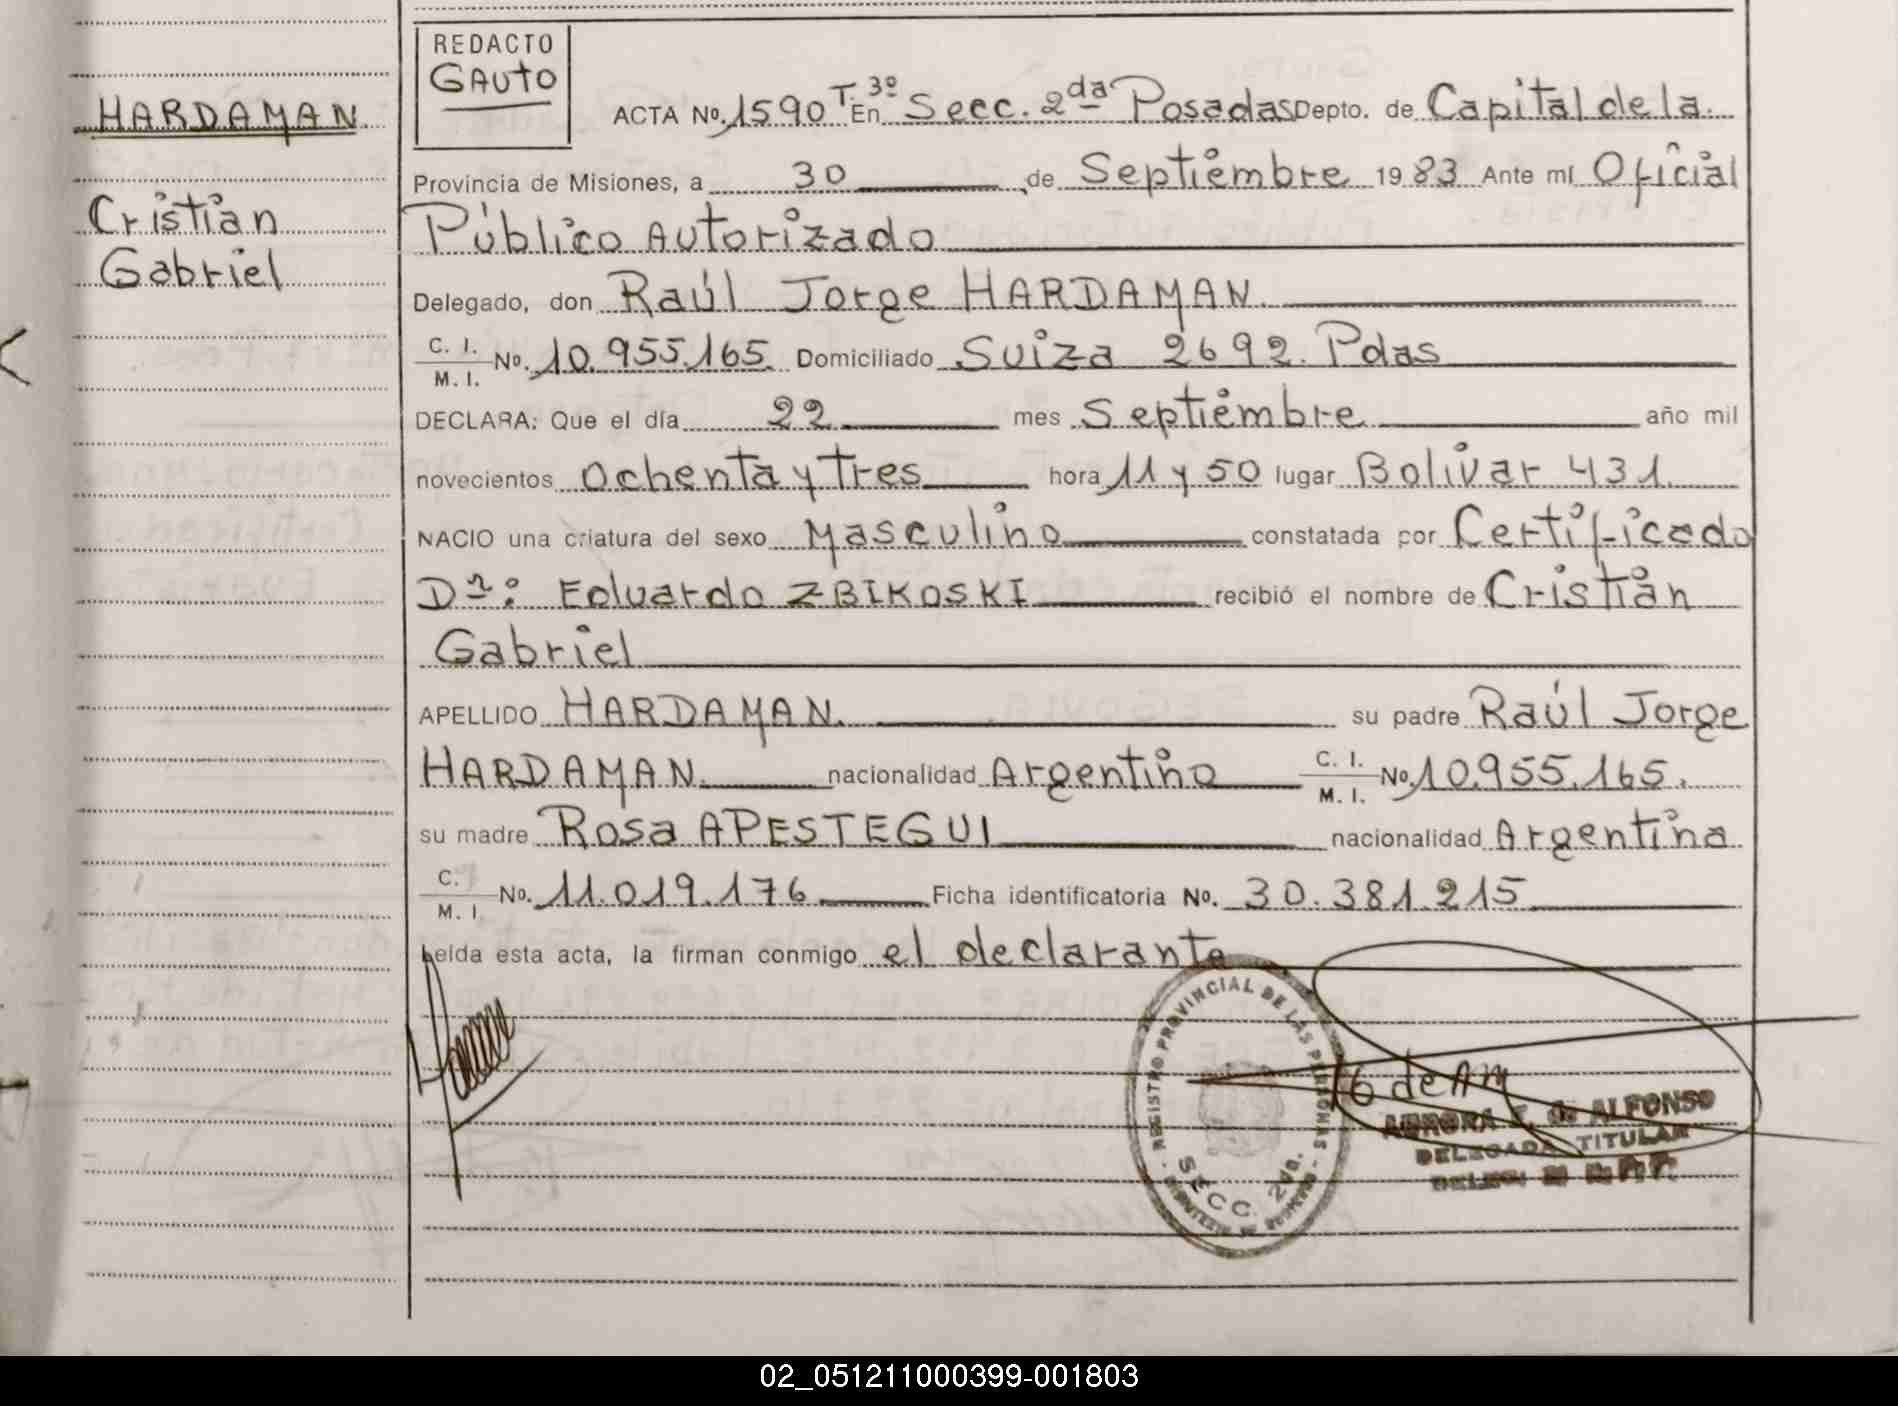 HARDAMAN
Cristian
Gabriel
REDACTO
GAUTO
ACTA No. 1590 T. 3º En Secc. 2da Posadas Depto. de Capital de la
Provincia de Misiones, a 30 de Septiembre 19 83 Ante mí Oficial
Público Autorizado
Delegado, don Raúl Jorge HARDAMAN.
C. I. / M. I. No. 10.955.165. Domiciliado Suiza 2692. Pdas
DECLARA: Que el día 22 mes Septiembre año mil
novecientos Ochenta y Tres hora 11 y 50 lugar Bolívar 431.
NACIO una criatura del sexo Masculino constatada por Certificado
Dr: Eduardo ZBIKOSKI recibió el nombre de Cristian
Gabriel
APELLIDO HARDAMAN. su padre Raúl Jorge
HARDAMAN. nacionalidad Argentino C. I. / M. I. No. 10.955.165.
su madre Rosa APESTEGUI nacionalidad Argentina
C. / M. I No. 11.019.176 Ficha identificatoria No. 30.381.215
Leída esta acta, la firman conmigo el declarante
REGISTRO PROVINCIAL DE LAS PERSONAS
SECC. 2da.
ALFONSO
DELEGADA TITULAR
02_051211000399-001803